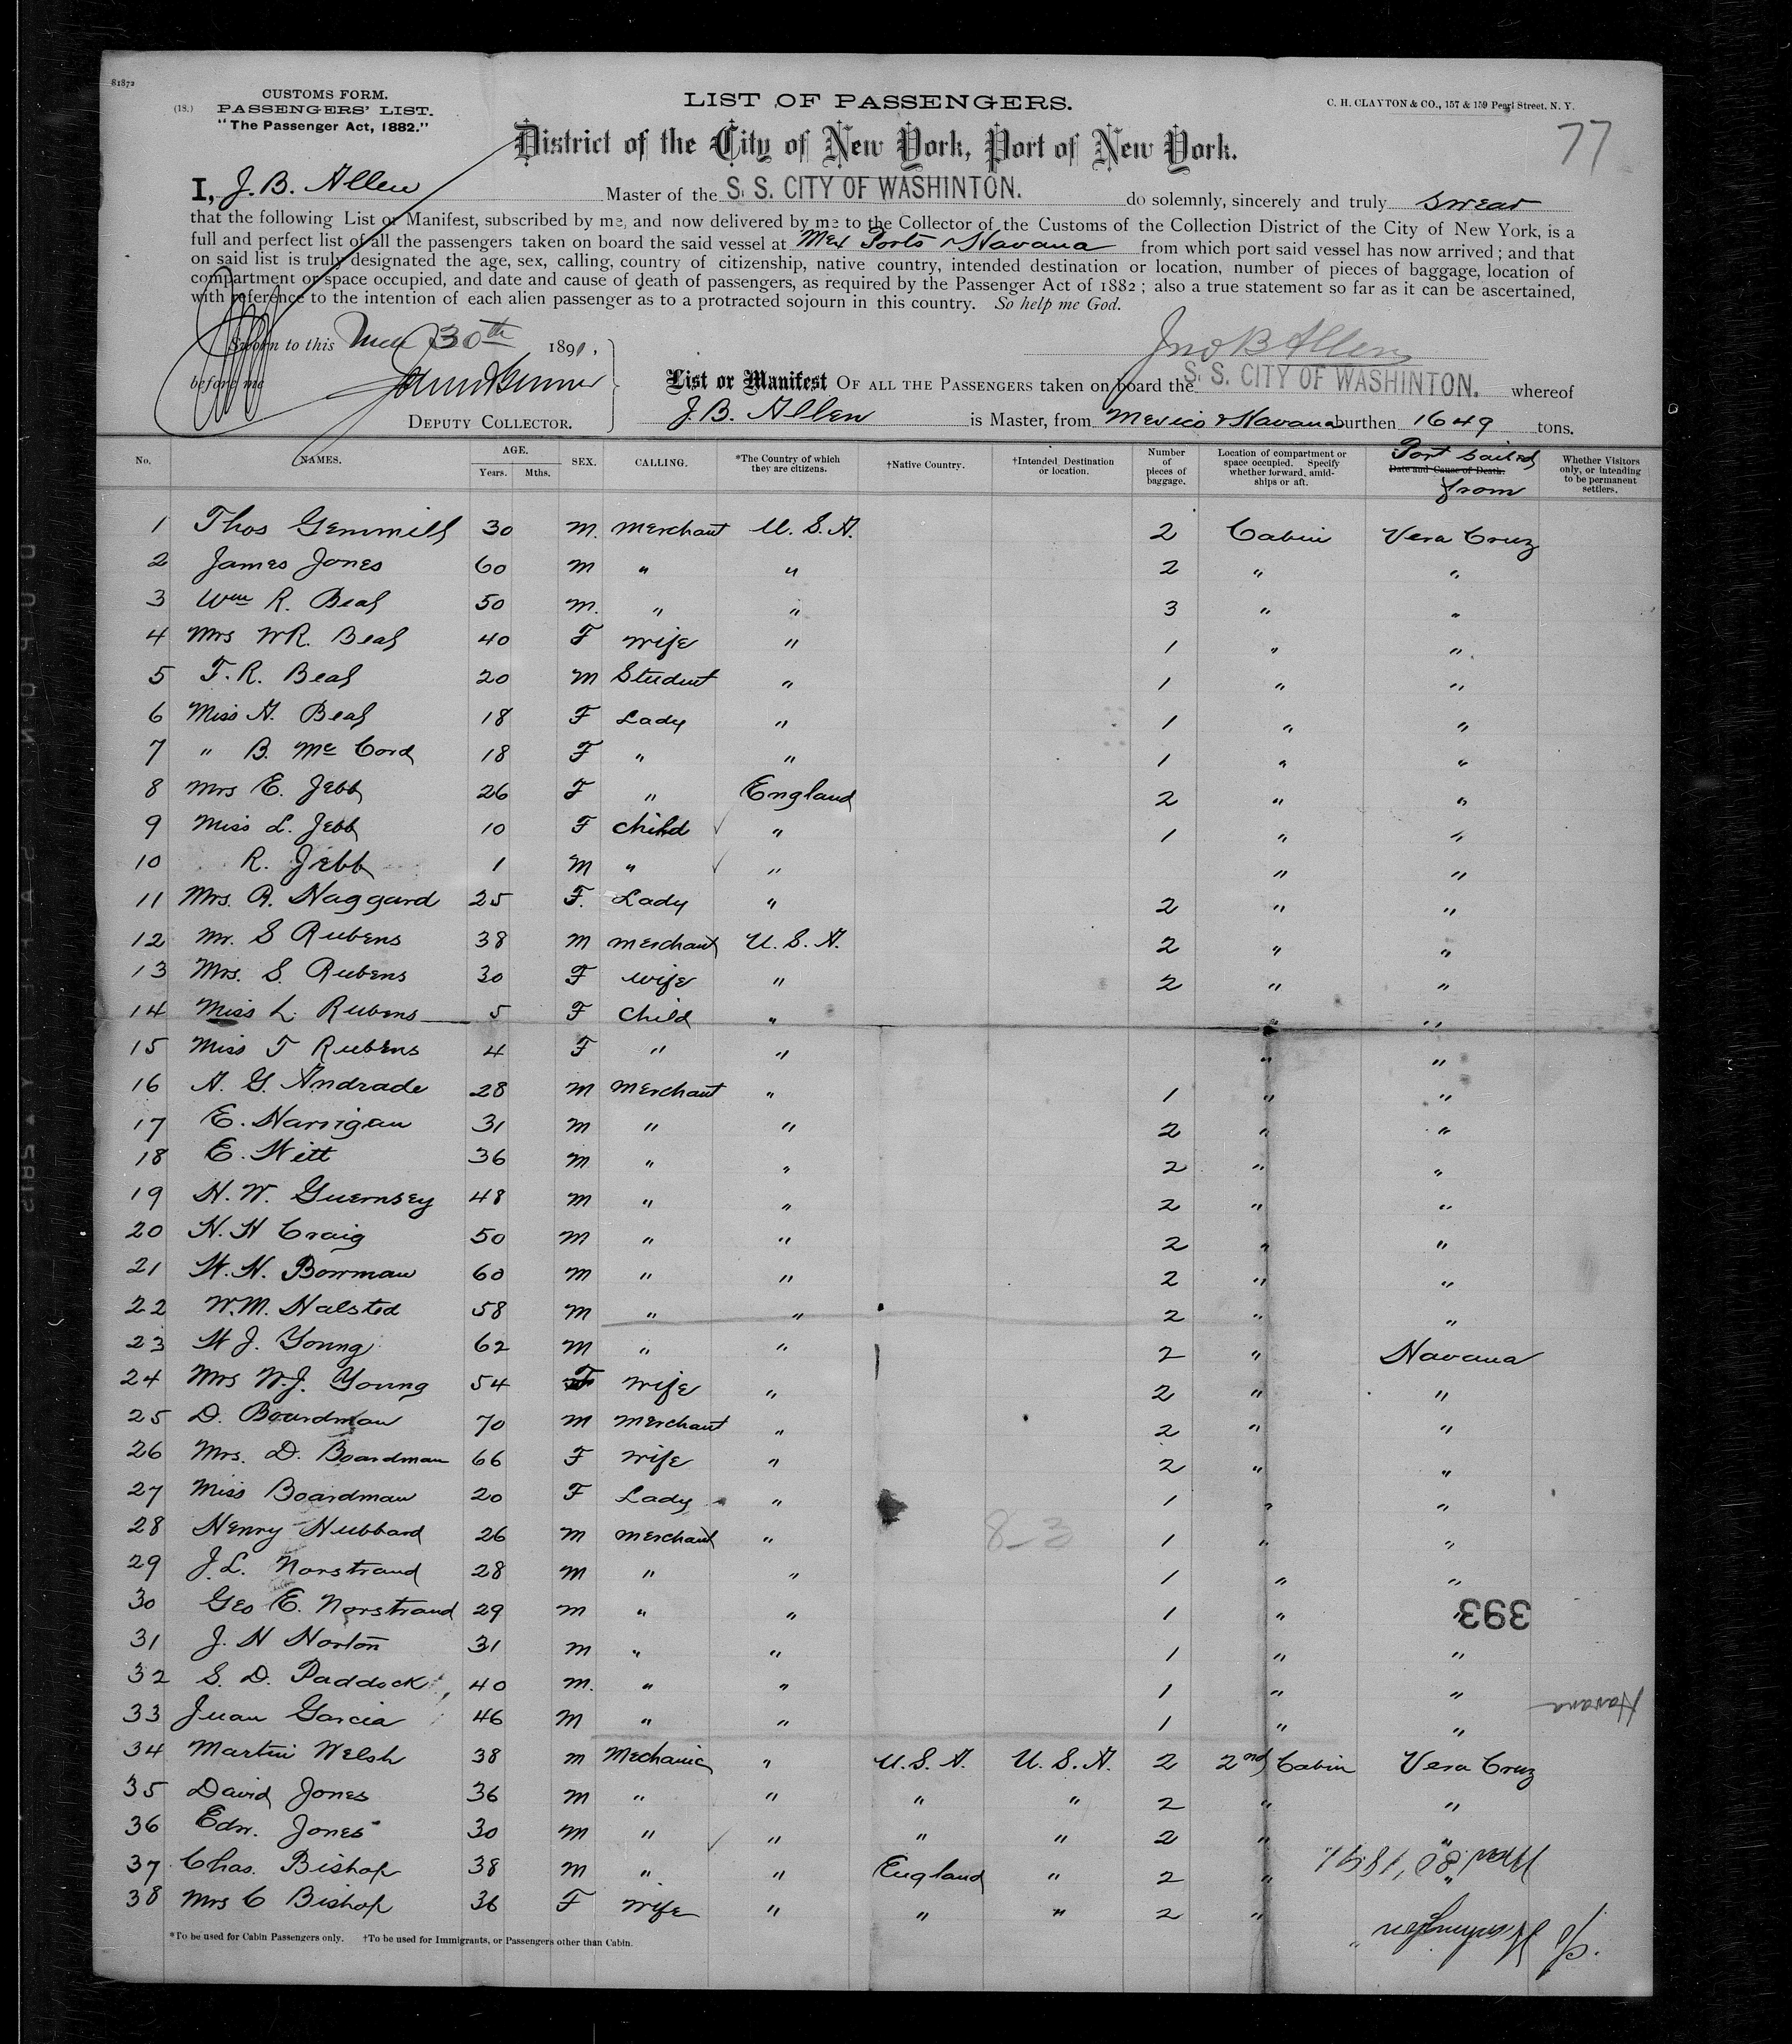 81872
CUSTOMS FORM.
(18.) PASSENGERS' LIST.
"The Passenger Act, 1882."
LIST OF PASSENGERS.
C. H. CLAYTON & CO., 157 & 159 Pearl Street, N. Y.
77
District of the City of New York, Port of New York.
I, J. B. Allen Master of the S. S. CITY OF WASHINTON. do solemnly, sincerely and truly swear
that the following List or Manifest, subscribed by me, and now delivered by me to the Collector of the Customs of the Collection District of the City of New York, is a
full and perfect list of all the passengers taken on board the said vessel at Mex Ports & Havana from which port said vessel has now arrived; and that
on said list is truly designated the age, sex, calling, country of citizenship, native country, intended destination or location, number of pieces of baggage, location of
compartment or space occupied, and date and cause of death of passengers, as required by the Passenger Act of 1882; also a true statement so far as it can be ascertained,
with reference to the intention of each alien passenger as to a protracted sojourn in this country. So help me God.
Sworn to this 30th 1891,
Jno B Allen
before me
DEPUTY COLLECTOR.
List or Manifest OF ALL THE PASSENGERS taken on board the S. S. CITY OF WASHINTON. whereof
J. B. Allen is Master, from Mexico & Havana burthen 1649 tons.
No. NAMES. AGE. Years. Mths. SEX. CALLING. *The Country of which they are citizens. †Native Country. †Intended Destination or location. Number of pieces of baggage. Location of compartment or space occupied. Specify whether forward, amidships or aft. Date and Cause of Death. Port sailed from Whether Visitors only, or intending to be permanent settlers.
1 Thos Gemmill 30 M. Merchant U.S.A. 2 Cabin Vera Cruz
2 James Jones 60 M " " 2 " "
3 Wm R. Beal 50 M. " " 3 " "
4 Mrs WR. Beal 40 F Wife " 1 " "
5 F. R. Beal 20 M Student " 1 " "
6 Miss A. Beal 18 F Lady " 1 " "
7 " B. Mc Cord 18 F " " 1 " "
8 Mrs E. Jebb 26 F " England 2 " "
9 Miss L. Jebb 10 F Child " 1 " "
10 R. Jebb 1 M " " " "
11 Mrs. R. Haggard 25 F. Lady " 2 " "
12 Mr. S Rubens 38 M Merchant U.S.A. 2 " "
13 Mrs. S. Rubens 30 F Wife " 2 " "
14 Miss L. Rubens 5 F Child " " "
15 Miss T Rubens 4 F " " " "
16 A. G. Andrade 28 M Merchant " 1 " "
17 E. Harrigan 31 M " " 2 " "
18 E. Witt 36 M " " 2 " "
19 H. W. Guernsey 48 M " " 2 " "
20 H. H Craig 50 M " " 2 " "
21 W. H. Bowman 60 M " " 2 " "
22 W. M. Halsted 58 M " " 2 " "
23 W J. Young 62 M " " 2 " Havana
24 Mrs W.J. Young 54 F Wife " 2 " "
25 D. Boardman 70 M Merchant " 2 " "
26 Mrs. D. Boardman 66 F Wife " 2 " "
27 Miss Boardman 20 F Lady " 1 " "
28 Henry Hubbard 26 M Merchant " 1 " "
8-3
29 J. L. Norstrand 28 M " " 1 " "
30 Geo E. Norstrand 29 M " " 1 " "
393
31 J. H Horton 31 M " " 1 " "
32 S. D. Paddock 40 M. " " 1 " "
Havana
33 Juan Garcia 46 M " " 1 " "
34 Martin Welsh 38 M Mechanic " U.S.A. U.S.A. 2 2nd Cabin Vera Cruz
35 David Jones 36 M " " " " 2 " "
36 Edw. Jones 30 M " " " " 2 " "
37 Chas. Bishop 38 M " " England " 2 " "
38 Mrs C Bishop 36 F Wife " " " 2 " "
*To be used for Cabin Passengers only. †To be used for Immigrants, or Passengers other than Cabin.